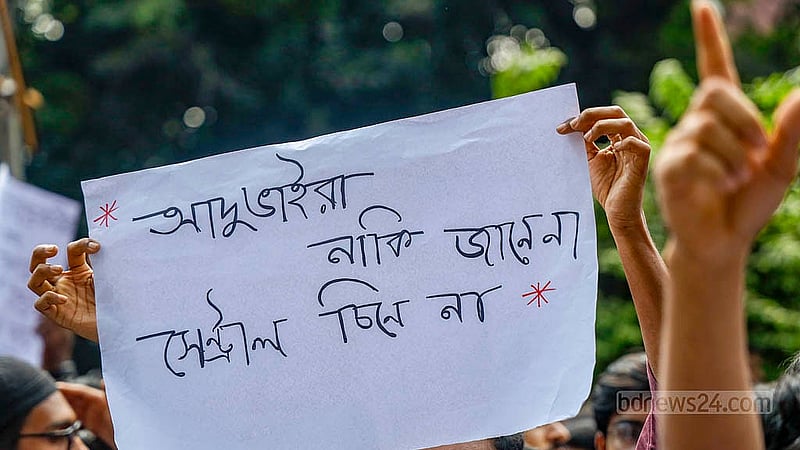 * আদুভাইরা
নাকি জানেনা
সেন্ট্রাল চিনে না *
bdnews24.com